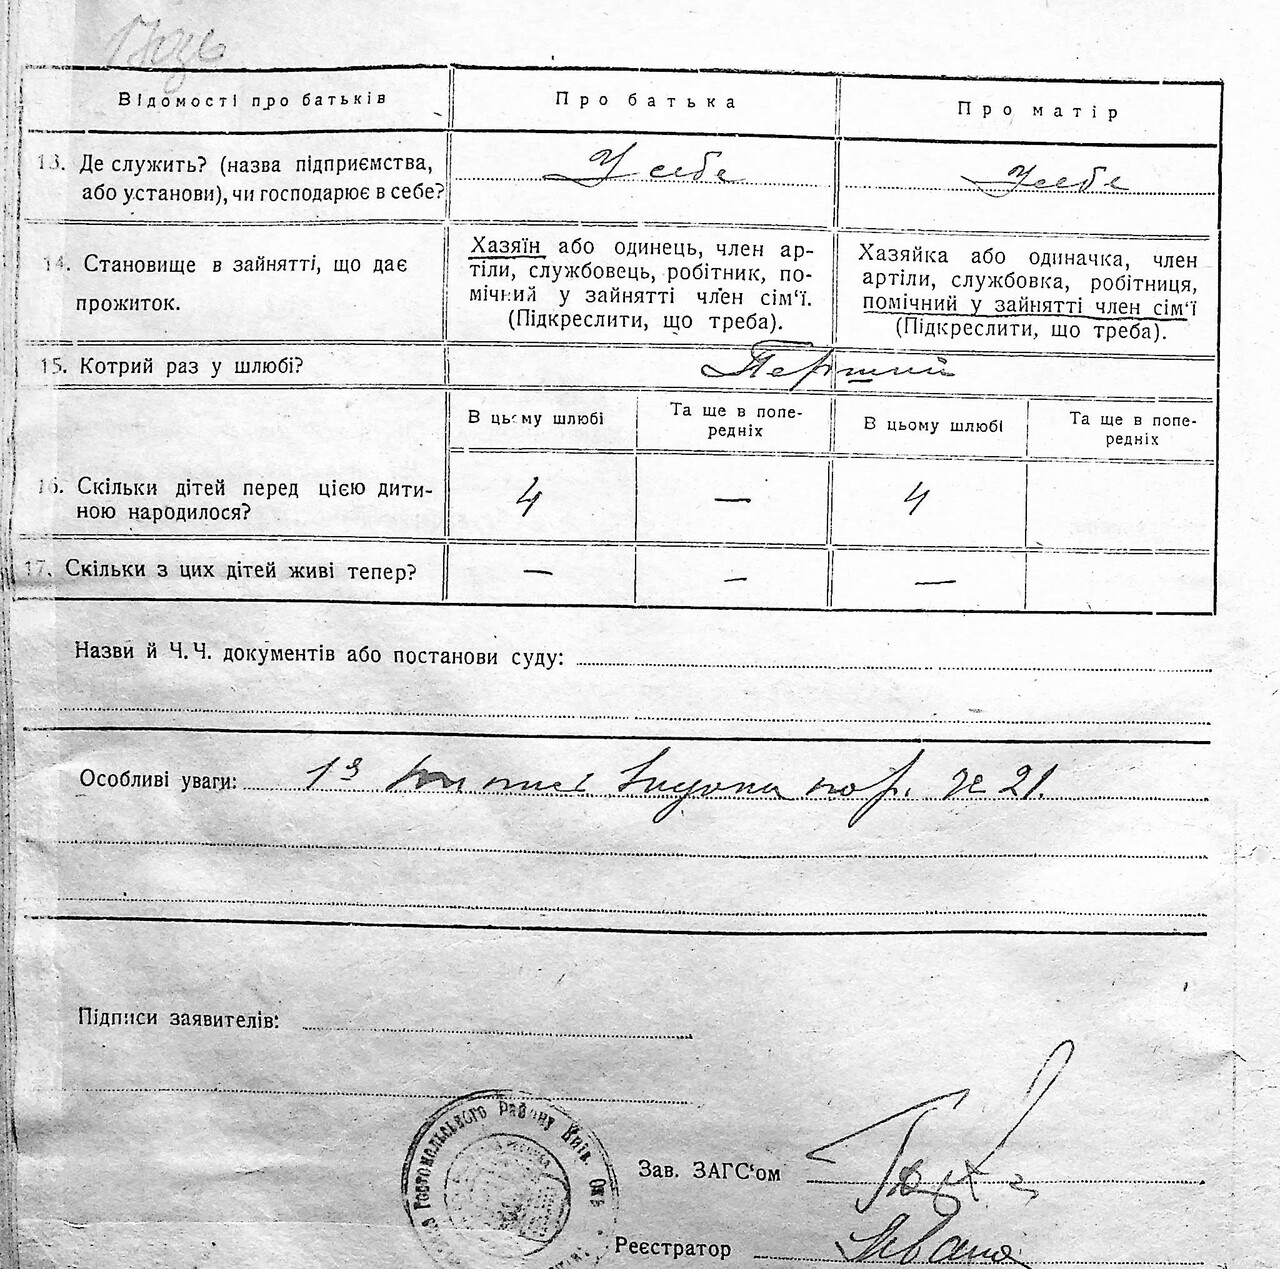 Відомості про батьків
Про батька
Про матір
13. Де служить? (назва підприємства,
або установи), чи господарює в себе?
У себе
У себе
14. Становище в зайнятті, що дає
прожиток.
Хазяїн або одинець, член ар-
тіли, службовець, робітник, по-
мічний у зайнятті член сім'ї.
(Підкреслити, що треба).
Хазяйка або одиначка, член
артіли, службовка, робітниця,
помічний у зайнятті член сім'ї
(Підкреслити, що треба).
15. Котрий раз у шлюбі?
Перший
В цьому шлюбі
Та ще в попе-
редніх
В цьому шлюбі
Та ще в попе-
редніх
16. Скільки дітей перед цією дити-
ною народилося?
4
—
4
17. Скільки з цих дітей живі тепер?
—
—
—
Назви й Ч.Ч. документів або постанови суду:
Особливі уваги:
пор. № 21.
Підписи заявителів:
Гостомольського Району Київ. Окр
Зав. ЗАГС'ом
Реєстратор